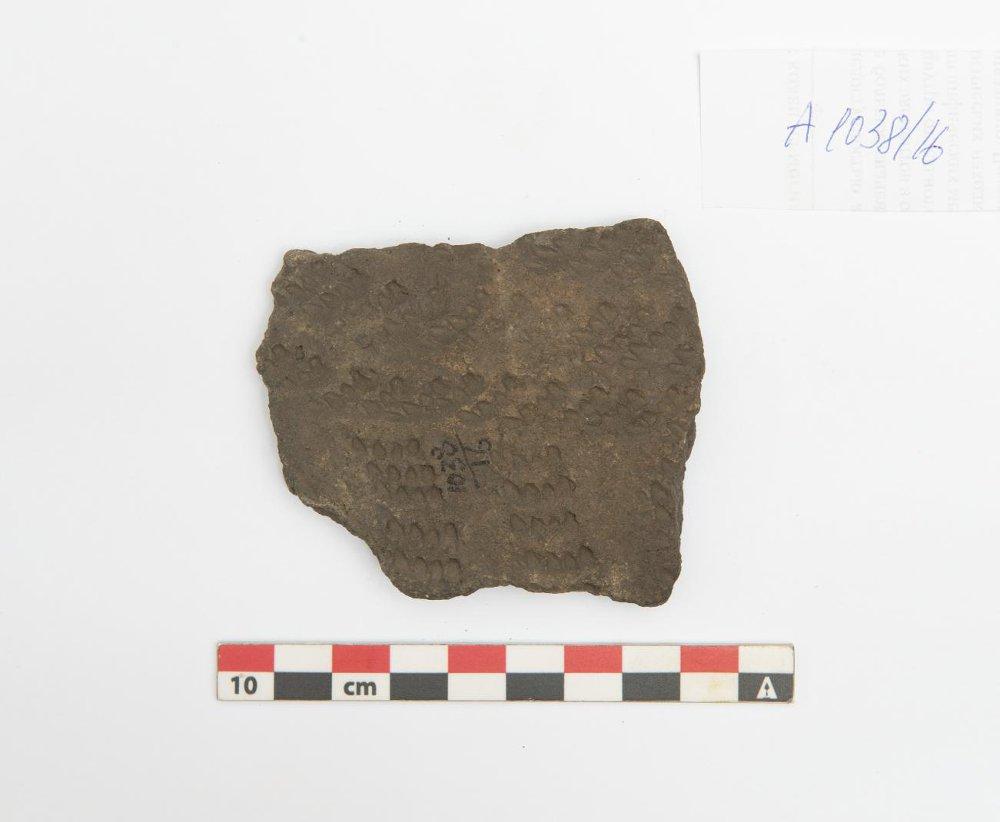 A 1038/16
1038
16
10 cm
A